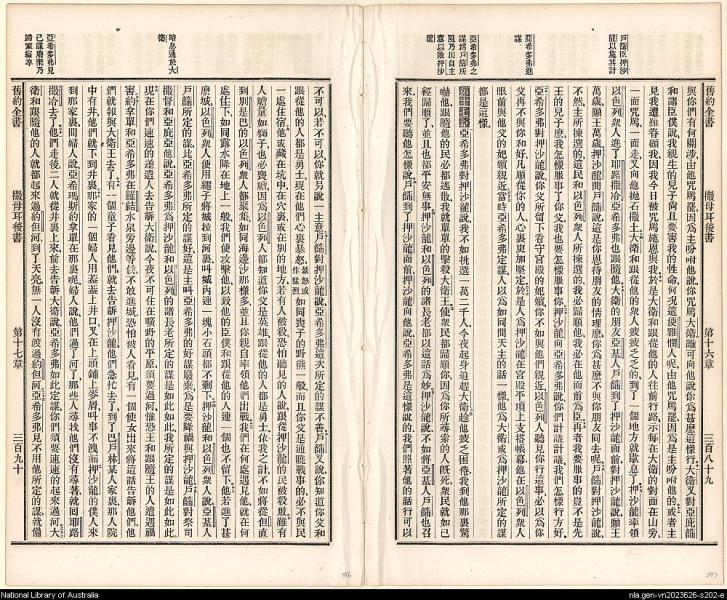 戶篩臣押沙龍以施其計
亞希多弗進謀
亞希多弗之謀爲戶篩所阻乃出自主意以敗押沙龍
舊約全書
撒母耳後書
第十六章
三百八十九
與你們有何關涉由他咒罵罷因爲主吩咐他說你咒罵大衛誰可向他說你爲甚麽這樣行大衛又對亞庇篩
和諸臣僕說我親生的兒子尚且要害我的性命何況這便雅憫人呢由他咒罵罷因爲是主吩咐他的或者主
見我遭難眷顧我因我今日被咒罵施恩與我於是大衛和跟從他的人往前行路示每在大衛的對面在山旁
一面咒罵一面走又向他拋石撒土大衛和跟從他的衆人疲疲乏乏的到了一個地方就歇息了押沙龍率領
以色列衆人進了耶路撒冷亞希多弗也跟隨他大衛的朋友亞基人戶篩到了押沙龍面前對押沙龍說願王
萬歲願王萬歲押沙龍問戶篩說這是你恩待朋友的情理麽你爲甚麽不與你朋友同去呢戶篩對押沙龍說
不然主所揀選的這民和以色列衆人所揀選的我必歸順他我必在他面前
王的兒子麽我怎樣服事了你父我也要怎樣服事你押沙龍向亞希多弗說你們計議計議我們怎樣行方好
亞希多弗對押沙龍說你父所留下看守宮殿的妃嬪你不如與他們親近以色列人聽見你行這事必以爲你
父再不與你和好凡順從你的人心裏更加堅定於是人爲押沙龍在宮殿平頂上支搭帳幕他在以色列衆人
眼前與他父的妃嬪親近當時亞希多弗定謀人以爲如同問天主的話一樣他爲大衛或爲押沙龍所定的謀
都是這樣
第十七章亞希多弗對押沙龍說我不如挑選一萬二千人今夜起身追趕大衛趁他疲乏困倦我到他那裏驚
嚇他跟隨他的民必都逃散我就單單的擊殺大衛王使衆民都歸順你因爲你所尋索的人旣死衆民就如已
經歸順了並且也都平安無事押沙龍和以色列的諸長老都以這話爲妙押沙龍說不如將亞基人戶篩也召
來我們要聽他怎樣說戶篩到了押沙龍面前押沙龍向他說亞希多弗是這樣說的我們照著他的話行可以
暗息通於大衛
亞希多弗見己謀廢棄乃歸家縊卒
不可以若不可以你就另說一主意戶篩對押沙龍說亞希多弗這次所定的謀不善戶篩又說你知道你父和
跟從他的人都是勇士現在他們心裏暴怒如同喪子的野熊一般而且你父是通曉戰事的必不與民
一處住宿他或藏在坑中在穴裏或在別的地方若有人被殺恐怕聽見的人說跟從押沙龍的民被殺敗雖有
人膽量如獅子也必喪膽因爲以色列人都知道你父是英雄跟從他的人都是勇士依我之計不如將從但直
到別是巴的以色列衆人都聚集如同海邊沙那樣多並且你親自率領他們出戰我們在何處遇見他就在何
處住下如同露水降在地上一般我們便攻擊他以致他的臣僕和跟從他的人連一個也不留下他若進了甚
麽城以色列衆人便用繩子將城拉到河裏叫城內連一塊小石頭都不剩下押沙龍和以色列衆人說亞基人
戶篩所定的謀比亞希多弗所定的謀好這是主叫亞希多弗的好謀廢棄爲是要降禍與押沙龍戶篩對祭司
撒督和亞庇亞他說亞希多弗爲押沙龍和以色列的諸長老所定的謀是如此如此我所定的謀是如此如此
現在你們速速的差遣人去告訴大衛說今夜不可住在曠野的平原須要過河惟恐王和跟隨王的人遭遇禍
害約拿單和亞希瑪斯在羅結水泉旁邊等信不敢進城恐怕被人看見有一個使女出來將這話告訴他們他
們就報與大衛王去了有一個童子看見他們就去告訴押沙龍他們急忙去了到了巴戶林某人家裏那人院
中有井他們就下到井裏那家的一個婦人用蓋蓋上井口又在上頭鋪上麥屑叫事不洩漏押沙龍的僕人來
到那家裏問婦人說亞希瑪斯約拿單在那裏呢婦人說他們過了河了那些人尋找他們沒有尋著就回耶路
撒冷去了他們走後二人就從井裏上來前去告訴大衛說亞希多弗如此定謀你們須要速速的起來過河大
衛和跟隨他的人就都起來過約但河到了天亮無一人沒有渡過約但河亞希多弗見不用他所定的謀就備
舊約全書
撒母耳後書
第十七章
三百九十
National Library of Australia
nla.gen-vn2023626-s202-e